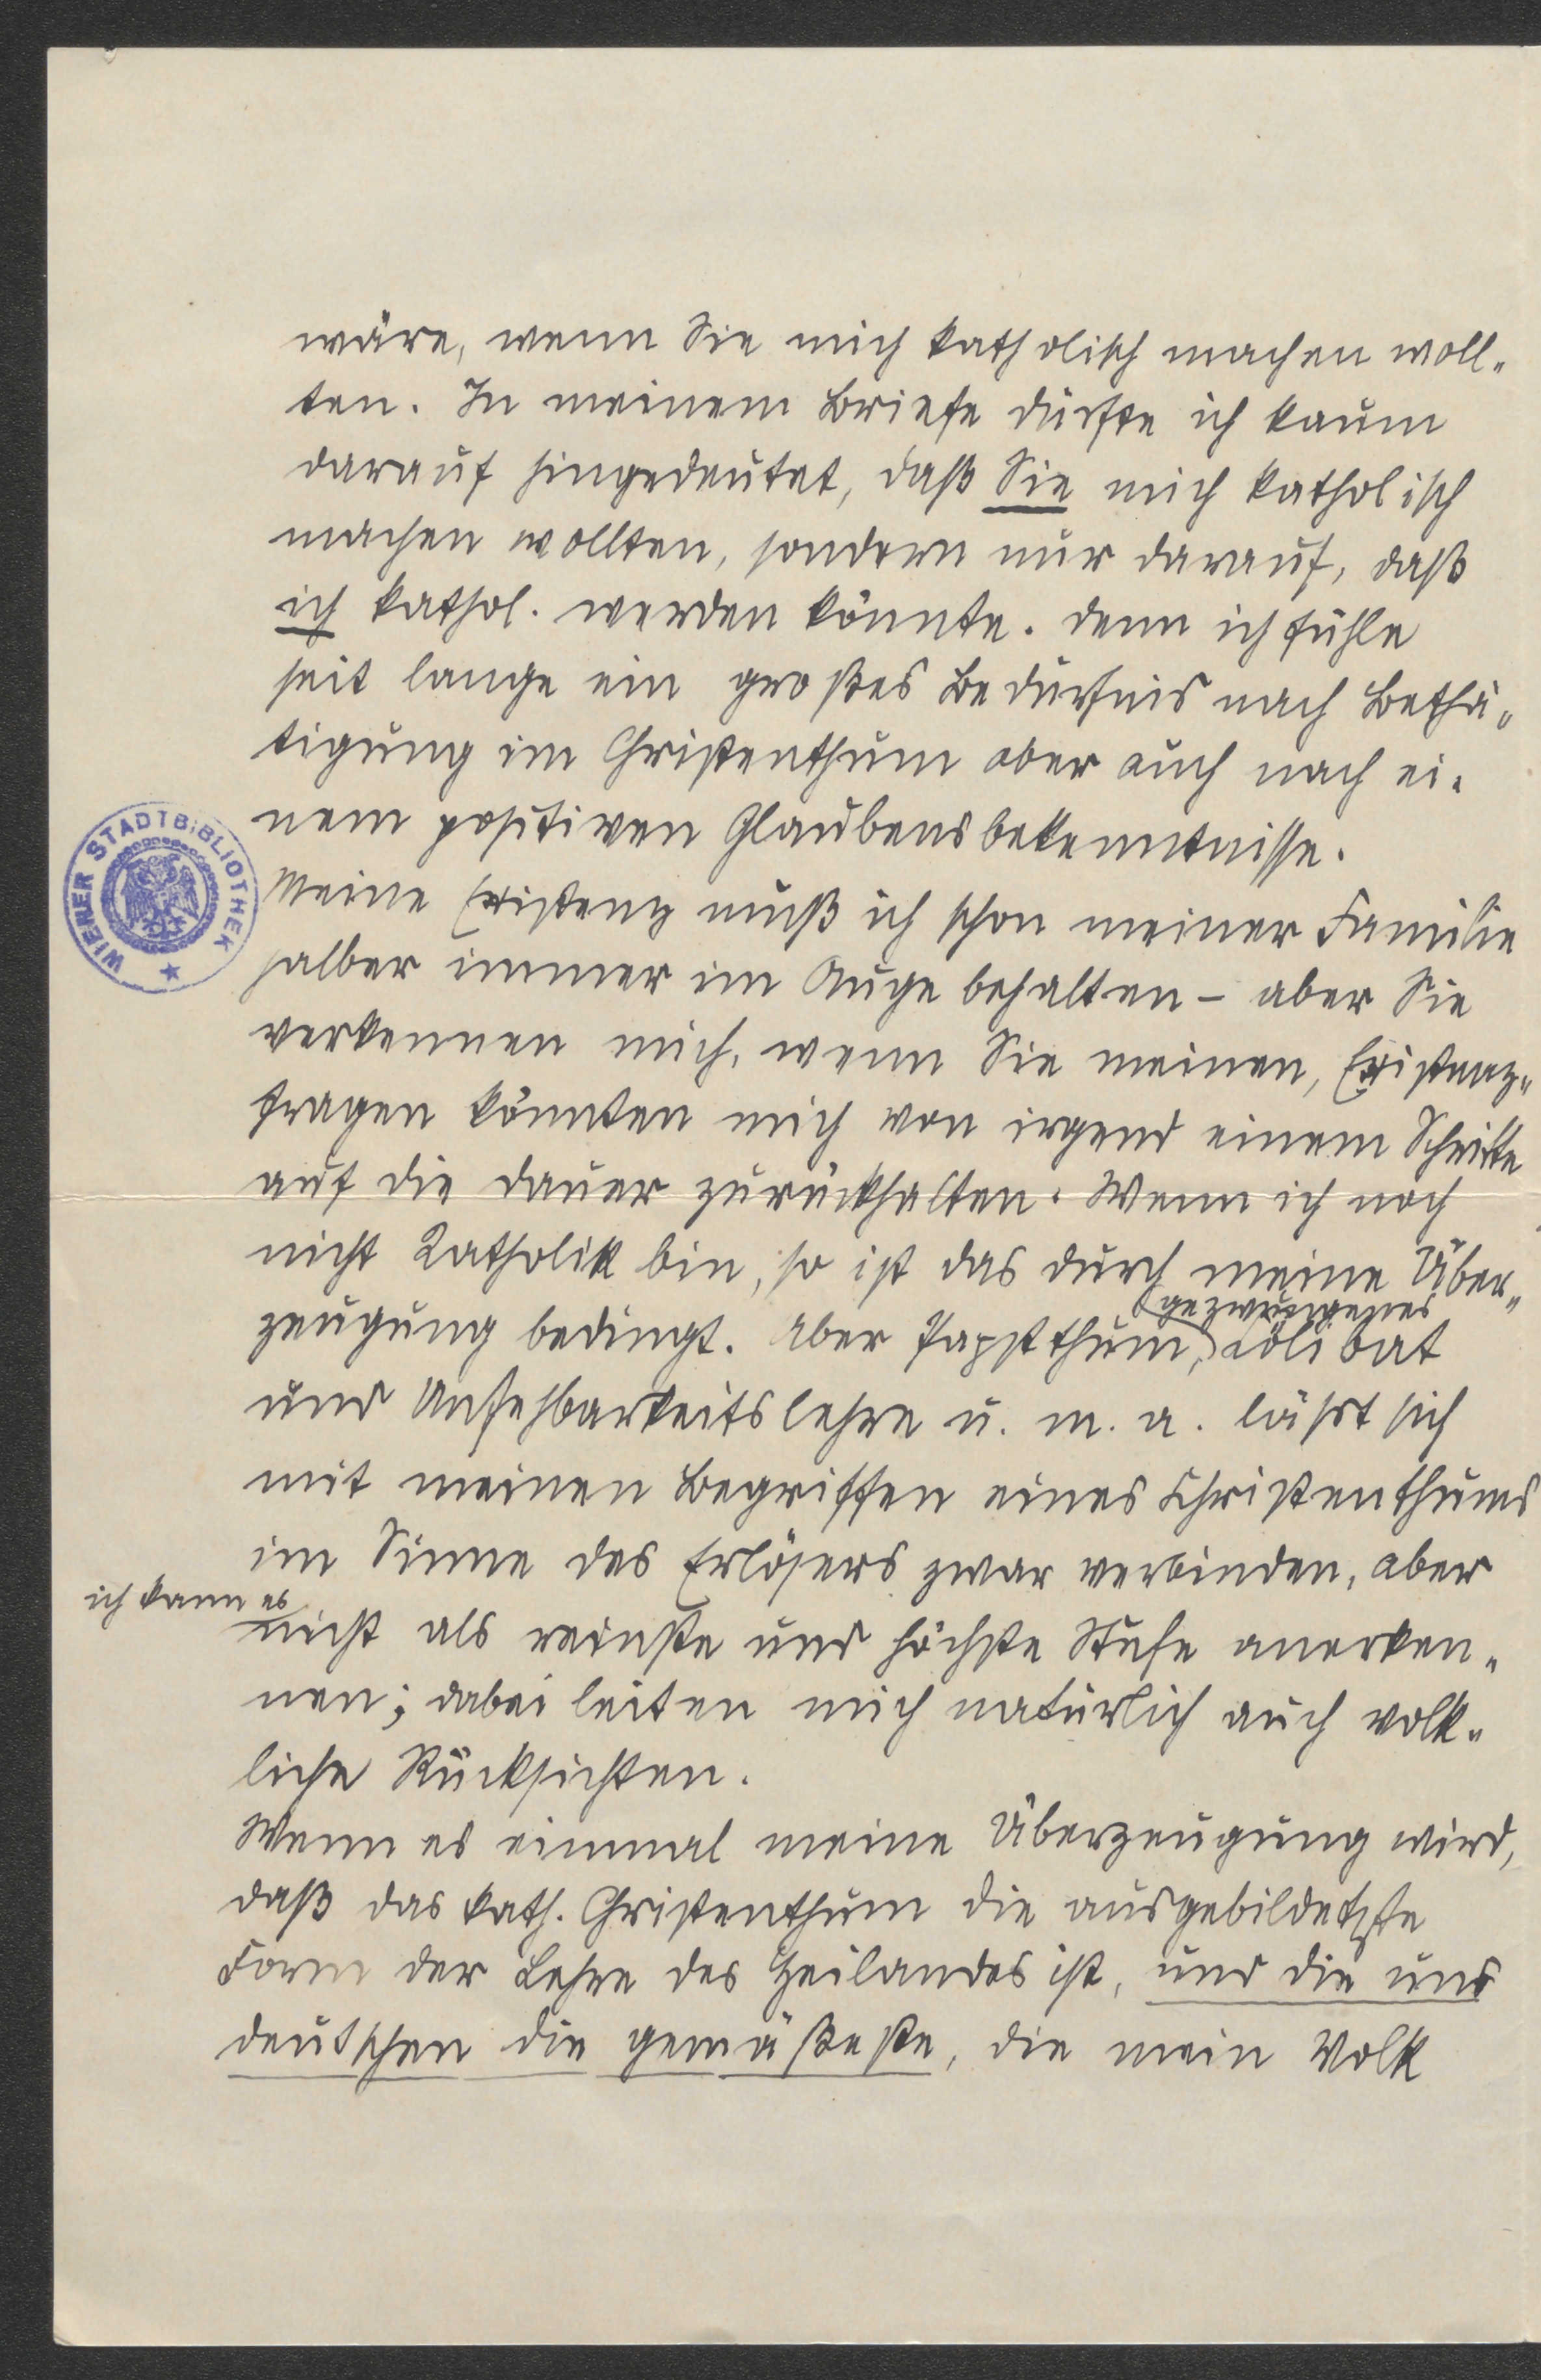 wäre, wenn Sie mich katholisch machen woll-
ten. In meinem Briefe dürfte ich kaum
darauf hingedeutet, daß Sie mich katholisch
machen wollten, sondern nur darauf, daß
ich kathol. werden könnte. Denn ich fühle
seit lange ein großes Bedürfnis nach Bethä-
tigung im Christenthum aber auch nach ei-
nem positiven Glaubensbekenntnisse.
Meine Existenz muß ich schon meiner Familie
halber immer im Auge behalten – aber Sie
verkennen mich, wenn Sie meinen, Existenz-
fragen könnten mich von irgend einem Schritte
auf die Dauer zurückhalten. Wenn ich noch
nicht Katholik bin, so ist das durch meine Über-
gezwungenes
zeugung bedingt. Aber Papstthum, Cölibat
und Unfehbarkeitslehre u. m. a. läßt sich
mit meinen Begriffen eines Christenthums
im Sinne des Erlösers zwar verbinden, aber
ich kann es
nicht als reinste und höchste Stufe anerken-
nen; dabei leiten mich natürlich auch volk-
liche Rücksichten.
Wenn es einmal meine Überzeugung wird,
daß das kath. Christenthum die ausgebildetste
Form der Lehre des Heilandes ist, und die uns
Deutschen die gemäßeste, die mein Volk
WIENER STADTBIBLIOTHEK